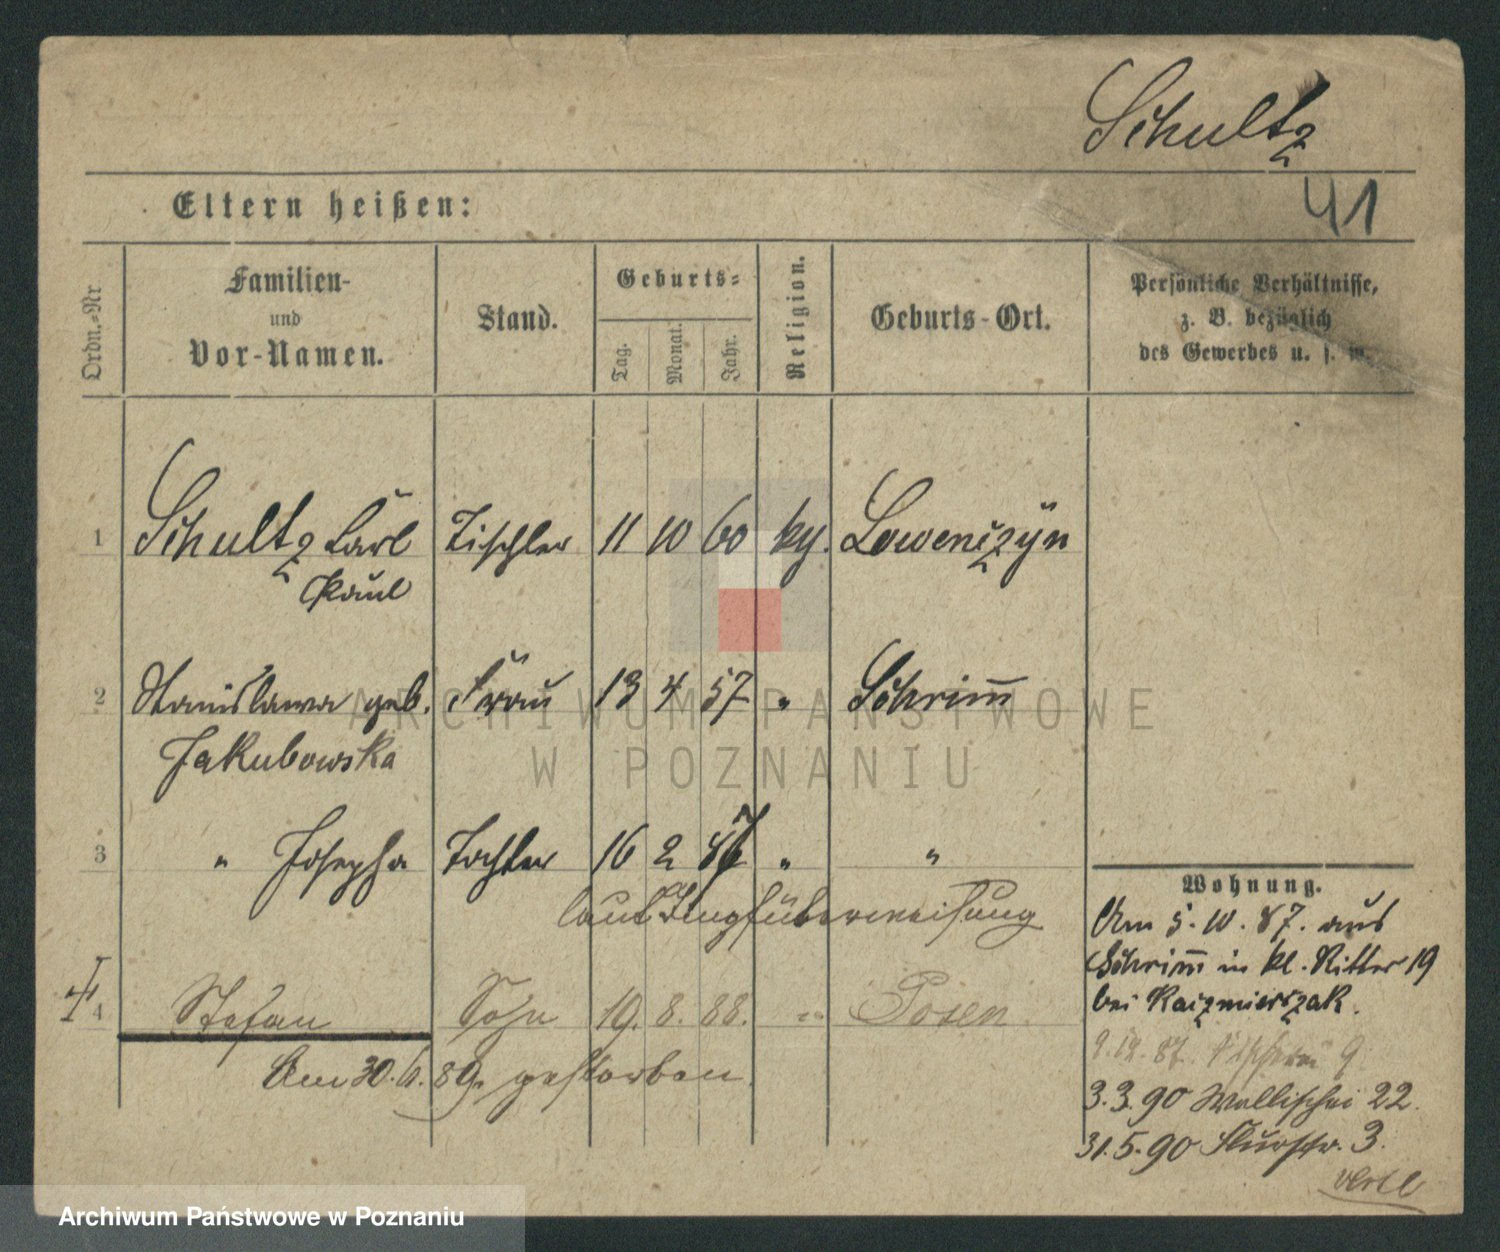 Schultz
41
Eltern heißen:
Ordn.-Nr
Familien-
und
Vor-Namen.
Stand.
Geburts-
Tag.
Monat.
Jahr.
Religion.
Geburts-Ort.
Persönliche Verhältnisse,
z. B. bezüglich
des Gewerbes u. s. w.
1 Schultz Carl Tischler 11 10 60 Lowenczÿn
Paul
2 Stanislawa geb. Frau 13 4 57 " Schrim̄
Jakubowska
3 " Josepha Tochter 16 2 " "
laut Zuzugsüberweisung
4 Stefan Sohn 19. 8. 88. " Posen
Am 30. 6. 89. gestorben.
Wohnung.
Am 5. 10. 87. aus
Schrim̄ in kl. Ritter 19
bei Kaczmierczak.
9. 12. 87. Fischerei 9
3.3.90 Wallischei 22.
31.5.90 3.
ARCHIWUM PAŃSTWOWE
W POZNANIU
Archiwum Państwowe w Poznaniu